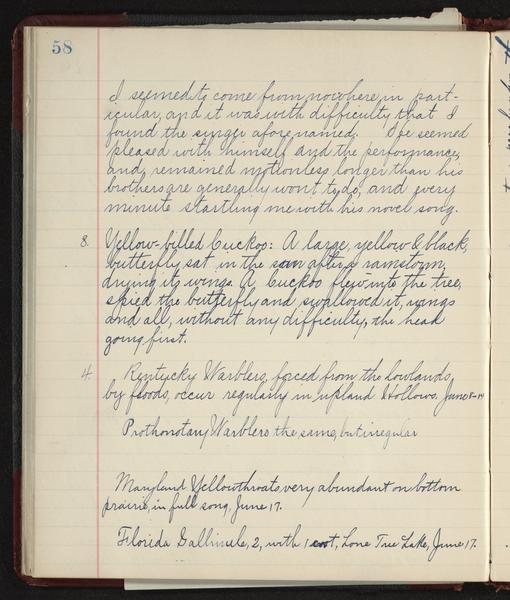 58
I seemed to come from nowhere in part-
icular, and it was with difficulty that I
found the singer aforenamed. He seemed
pleased with himself and the performance,
and remained motionless longer than his
brothers are generally wont to do, and every
minute startling me with his novel song.
8. Yellow-billed Cuckoo: A large, yellow & black,
butterfly sat in the sun after a rainstorm,
drying its wings. A Cuckoo flew into the tree,
spied the butterfly and swallowed it, wings
and all, without any difficulty, the head
going first.
4. Kentucky Warblers, forced from the lowlands,
by floods, occur regularly in upland Hollows, June
Prothonotary Warblers the same, but irregular
Maryland Yellowthroats very abundant on bottom
prairie, in full song, June 17.
Florida Gallinule, 2, with 1 coot, Lone Tree Lake, June 17.